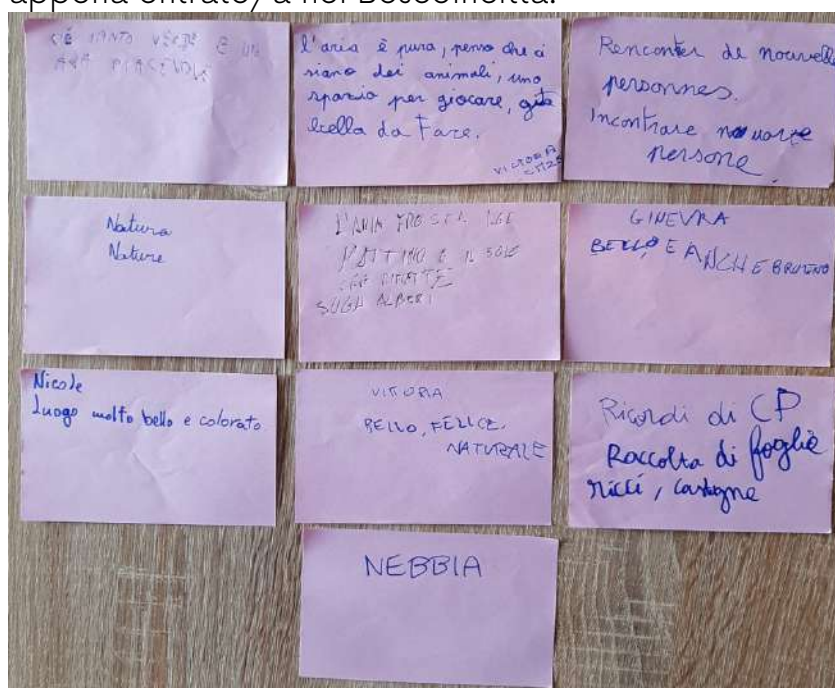 appena entrato/a nel Boscoincittà.
C'È TANTO VERDE E UN
ARIA PIACEVOLE
l'aria è pura, penso che ci
siano dei animali, uno
spazio per giocare, gita
bella da fare.
VICTORIA
CM2B
Rencontrer de nouvelle
personnes.
Incontrare nuove
persone.
Natura
Nature
L'ARIA FRESCA DEL
MATTINO E IL SOLE
CHE RIFLETTE
SUGLI ALBERI
GINEVRA
BELLO E ANCHE BRUTTO
Nicole
Luogo molto bello e colorato
VITTORIA
BELLO, FELICE,
NATURALE
Ricordi di CP
Raccolta di foglie
ricci, castagne
NEBBIA